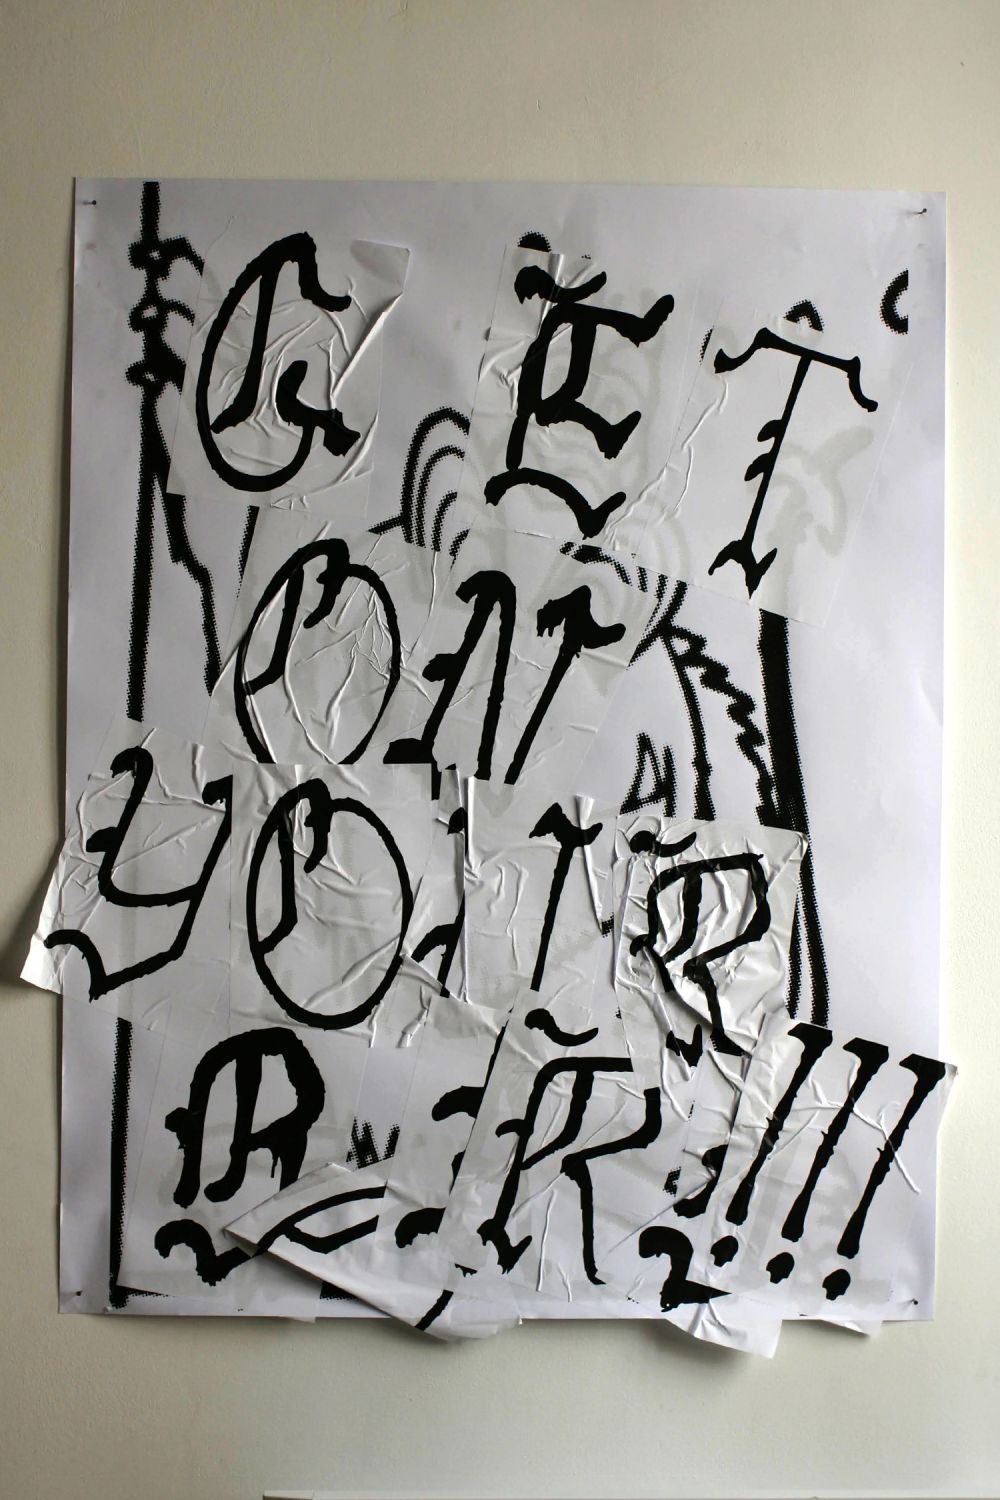 GET
ON
YOUR
!!!